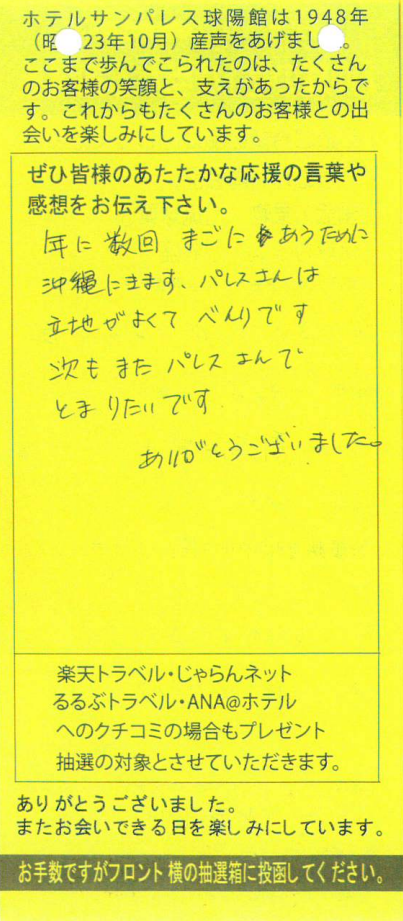 ホテルサンパレス球陽館は1948年
（昭 23年10月）産声をあげまし 。
ここまで歩んでこられたのは、たくさん
のお客様の笑顔と、支えがあったからで
す。これからもたくさんのお客様との出
会いを楽しみにしています。
ぜひ皆様のあたたかな応援の言葉や
感想をお伝え下さい。
1年に数回 まごに あうために
沖縄にきます、パレスさんは
立地がよくて べんりです
次も また パレス さんで
とまりたいです
ありがとうございました。
楽天トラベル・じゃらんネット
るるぶトラベル・ANA@ホテル
へのクチコミの場合もプレゼント
抽選の対象とさせていただきます。
ありがとうございました。
またお会いできる日を楽しみにしています。
お手数ですがフロント横の抽選箱に投函してください。